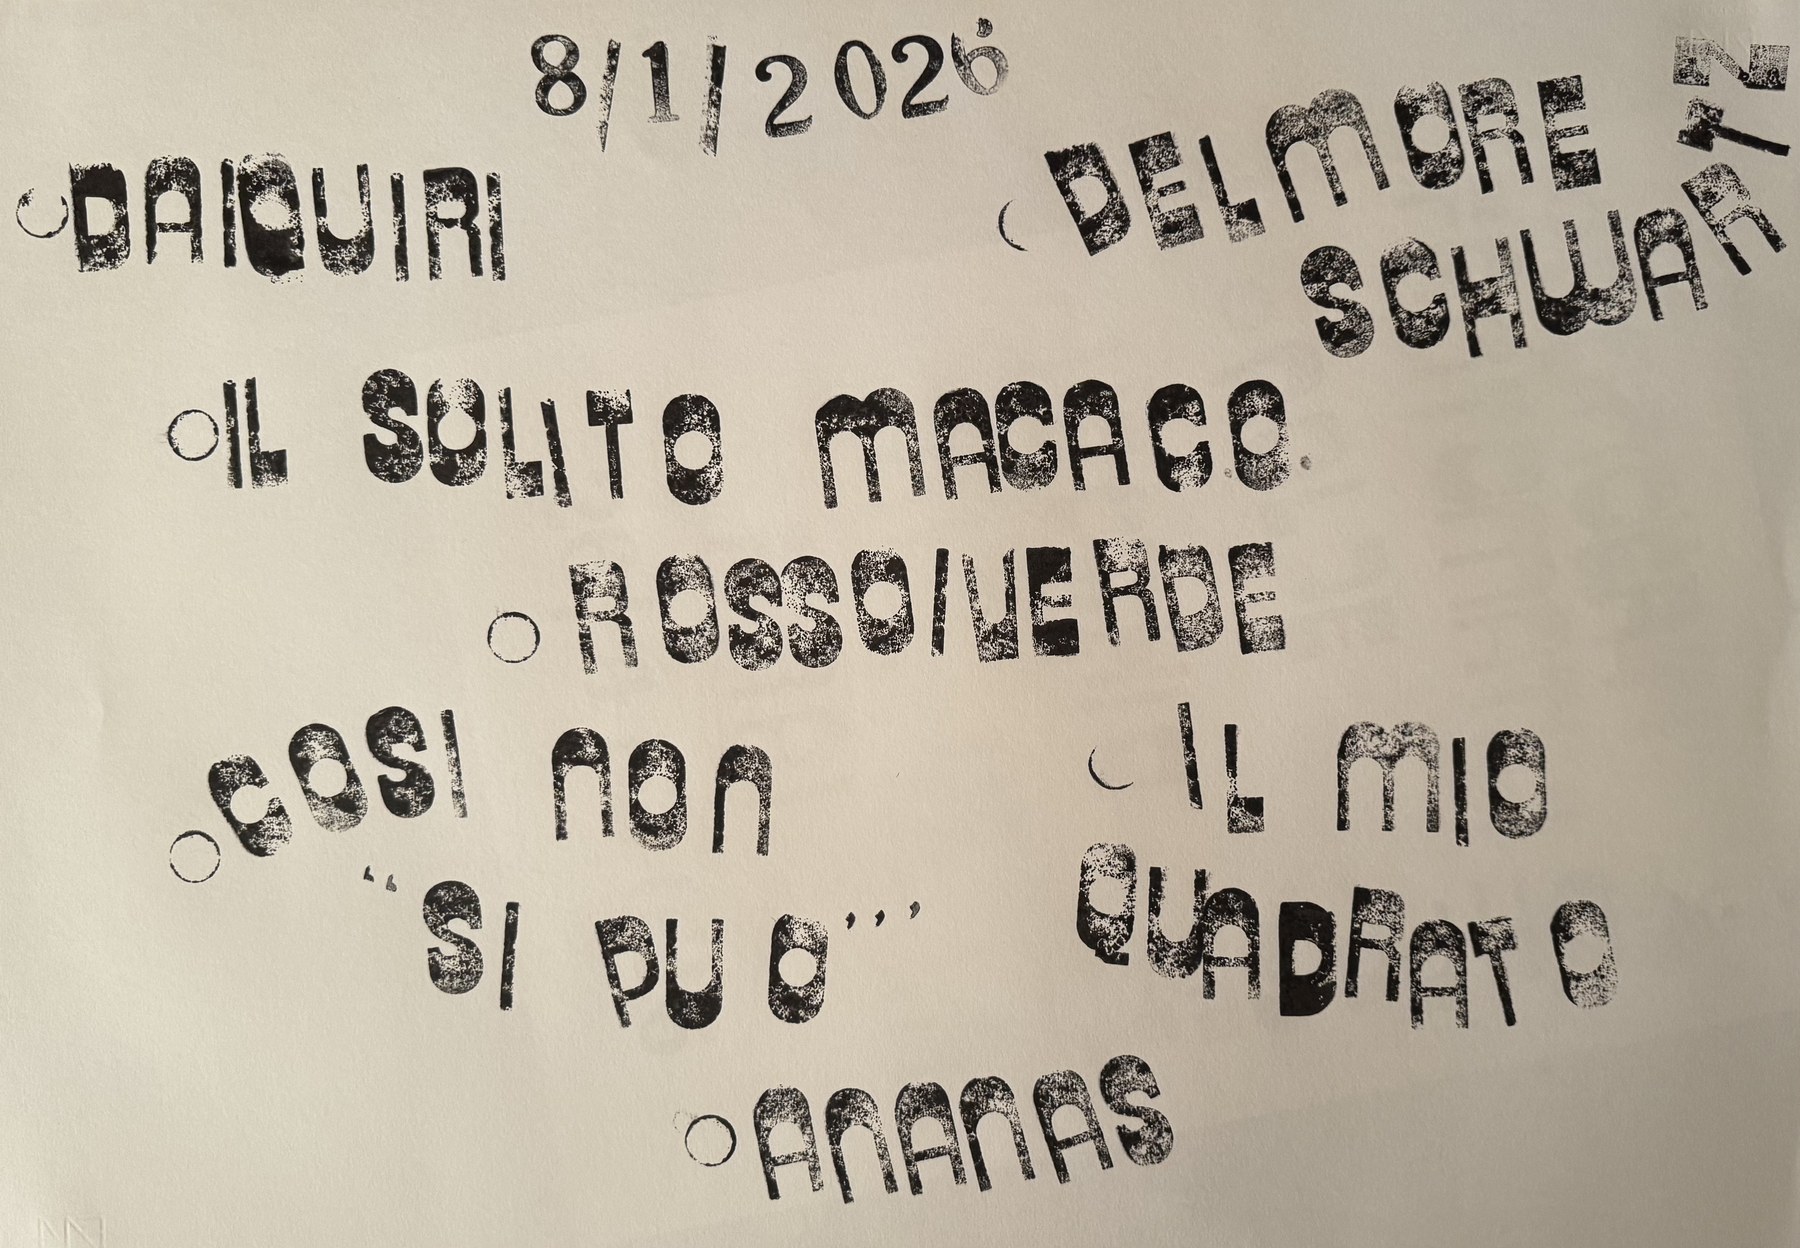 8/1/2026
DAIQUIRI
DELMORE
SCHWARTZ
IL SOLITO MACACO.
ROSSO/VERDE
COSI NON
“SI PUO”’
IL MIO
QUADRATO
ANANAS